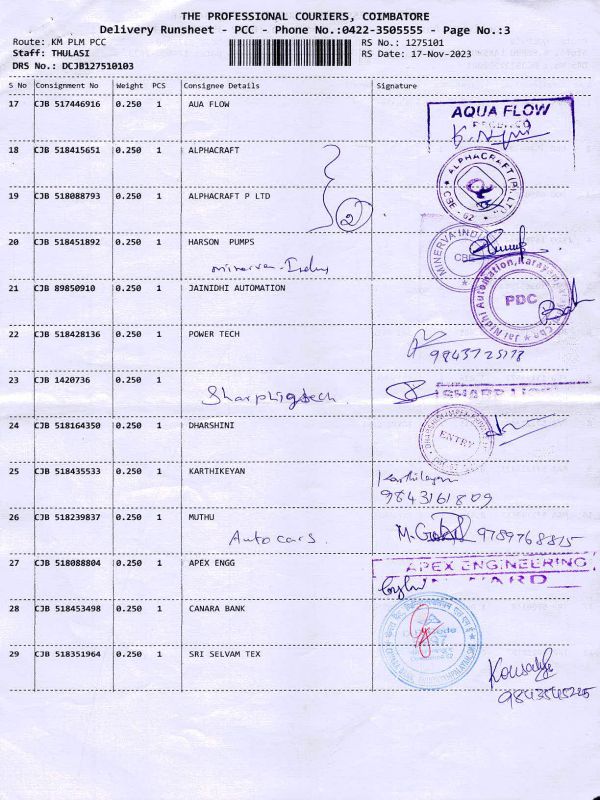 THE PROFESSIONAL COURIERS, COIMBATORE
Delivery Runsheet - PCC - Phone No.:0422-3505555 - Page No.:3
Route: KM PLM PCC
RS No.: 1275101
Staff: THULASI
RS Date: 17-Nov-2023
DRS No.: DCJB127510103
S No Consignment No Weight PCS Consignee Details Signature
17 CJB 517446916 0.250 1 AUA FLOW
AQUA FLOW
18 CJB 518415651 0.250 1 ALPHACRAFT
ALPHACRAFT (P) LTD
CBE - 62
19 CJB 518088793 0.250 1 ALPHACRAFT P LTD
2
20 CJB 518451892 0.250 1 HARSON PUMPS
minerva-Indus
MINERVA INDU
CBE
21 CJB 89850910 0.250 1 JAINIDHI AUTOMATION
Jai Nidhi Automation,
PDC
22 CJB 518428136 0.250 1 POWER TECH
23 CJB 1420736 0.250 1
Sharphigtech.
24 CJB 518164350 0.250 1 DHARSHINI
ENTRY
25 CJB 518435533 0.250 1 KARTHIKEYAN
Karthikeyan
9843161809
26 CJB 518239837 0.250 1 MUTHU
Autocars.
9789768815
27 CJB 518088804 0.250 1 APEX ENGG
APEX ENGINEERING
28 CJB 518453498 0.250 1 CANARA BANK
29 CJB 518351964 0.250 1 SRI SELVAM TEX